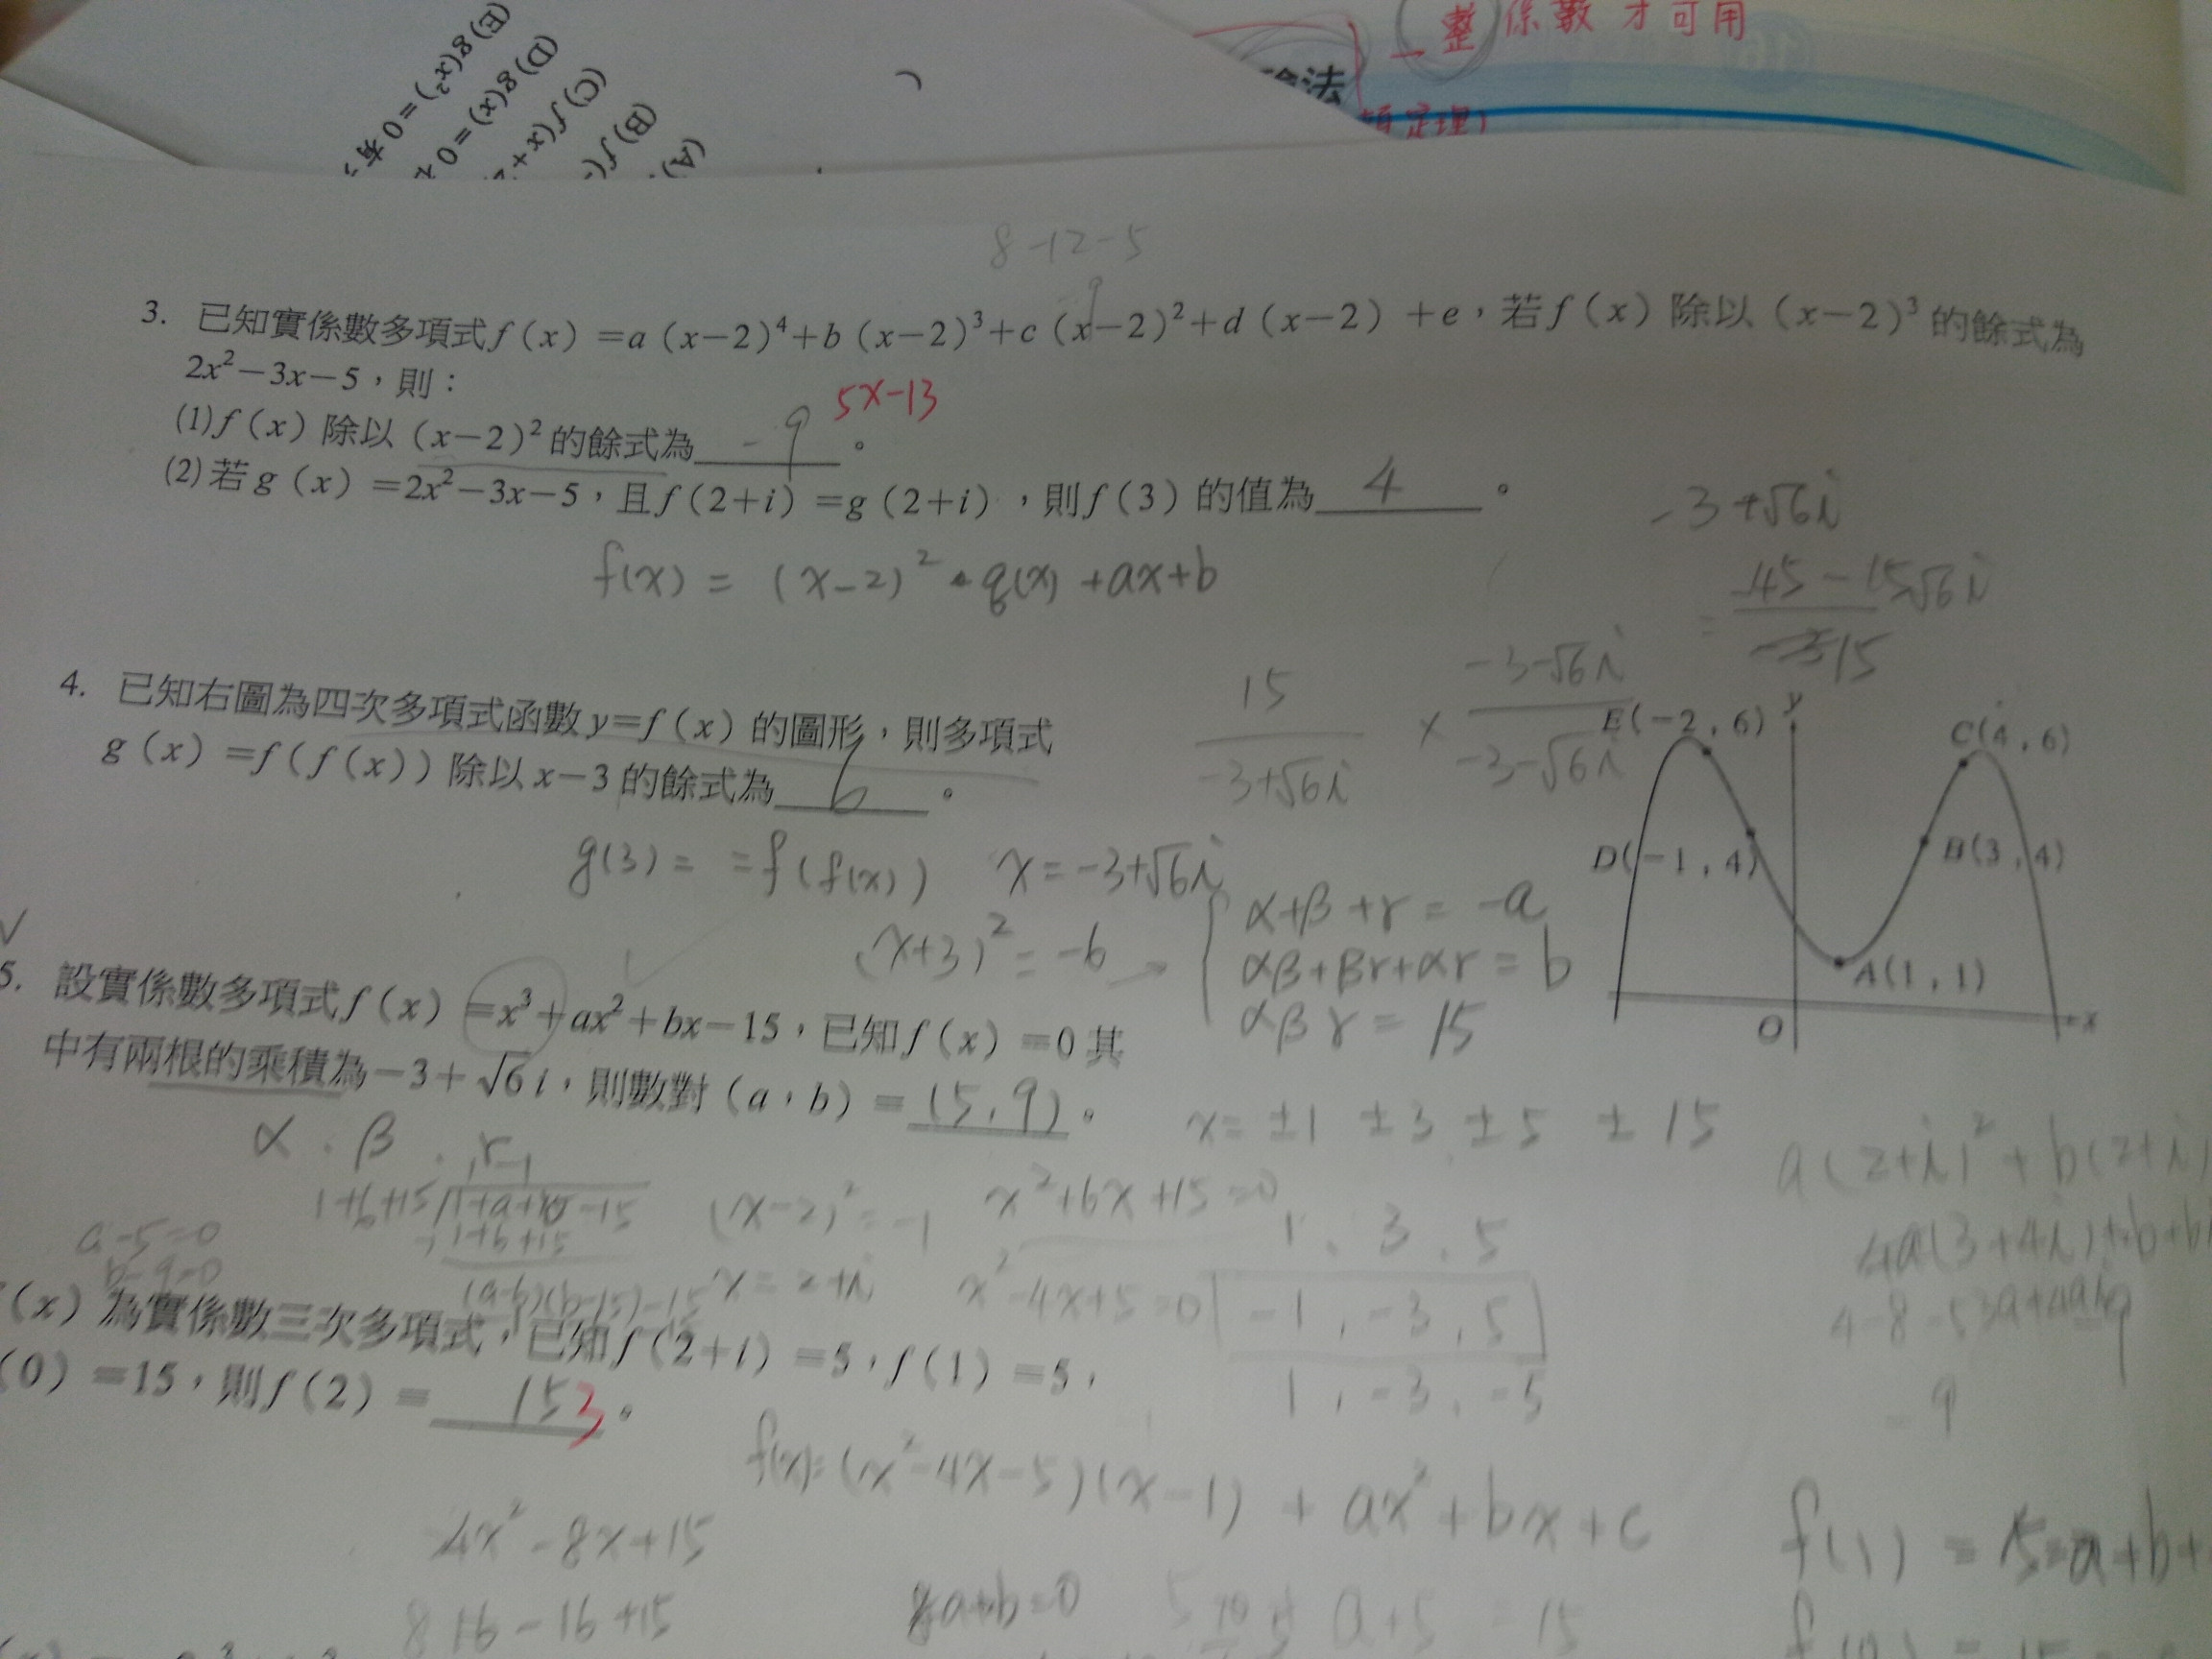 整係數才可用
法
定理)
(E) g(x²)=0 有
(D) g(x)=0
(C) f(x+
(B) f(-
(A)
8-12-5
-9
3. 已知實係數多項式f(x)=a(x-2)⁴+b(x-2)³+c(x-2)²+d(x-2)+e,若f(x)除以(x-2)³的餘式為
2x²-3x-5,則:
5x-13
(1)f(x)除以(x-2)²的餘式為 -9 。
(2)若g(x)=2x²-3x-5,且f(2+i)=g(2+i),則f(3)的值為 4 。
-3+√6i
f(x) = (x-2)²·q(x)+ax+b
= 45-15√6i
15
4. 已知右圖為四次多項式函數y=f(x)的圖形,則多項式
g(x)=f(f(x))除以x-3的餘式為 6 。
15 × -3-√6i
-3+√6i -3-√6i
E(-2,6)
y
C(4,6)
D(-1,4)
B(3,4)
A(1,1)
O
x
g(3)= =f(f(x)) x=-3+√6i
(x+3)²=-6 →
α+β+γ=-a
αβ+βγ+αγ=b
αβγ=15
5. 設實係數多項式f(x)=x³+ax²+bx-15,已知f(x)=0其
中有兩根的乘積為-3+√6i,則數對(a,b)= (5,9) 。
α·β·γ
x=±1 ±3 ±5 ±15
1+6+15 1+a+b-15
1+6+15
a-5=0
b-9=0
(a-6)(b-15)-15
(x-2)²=-1
x=2+i
x²+6x+15=0
x²-4x+5=0
1,3,5
-1,-3,5
1,-3,-5
a(2+i)²+b(2+i)
(x)為實係數三次多項式,已知f(2+i)=5,f(1)=5,
(0)=15,則f(2)= 15 3 。
-9
f(x)=(x²-4x-5)(x-1)+ax²+bx+c
4x²-8x+15
16-16+15
a+b=0
f(1)=5=a+b+